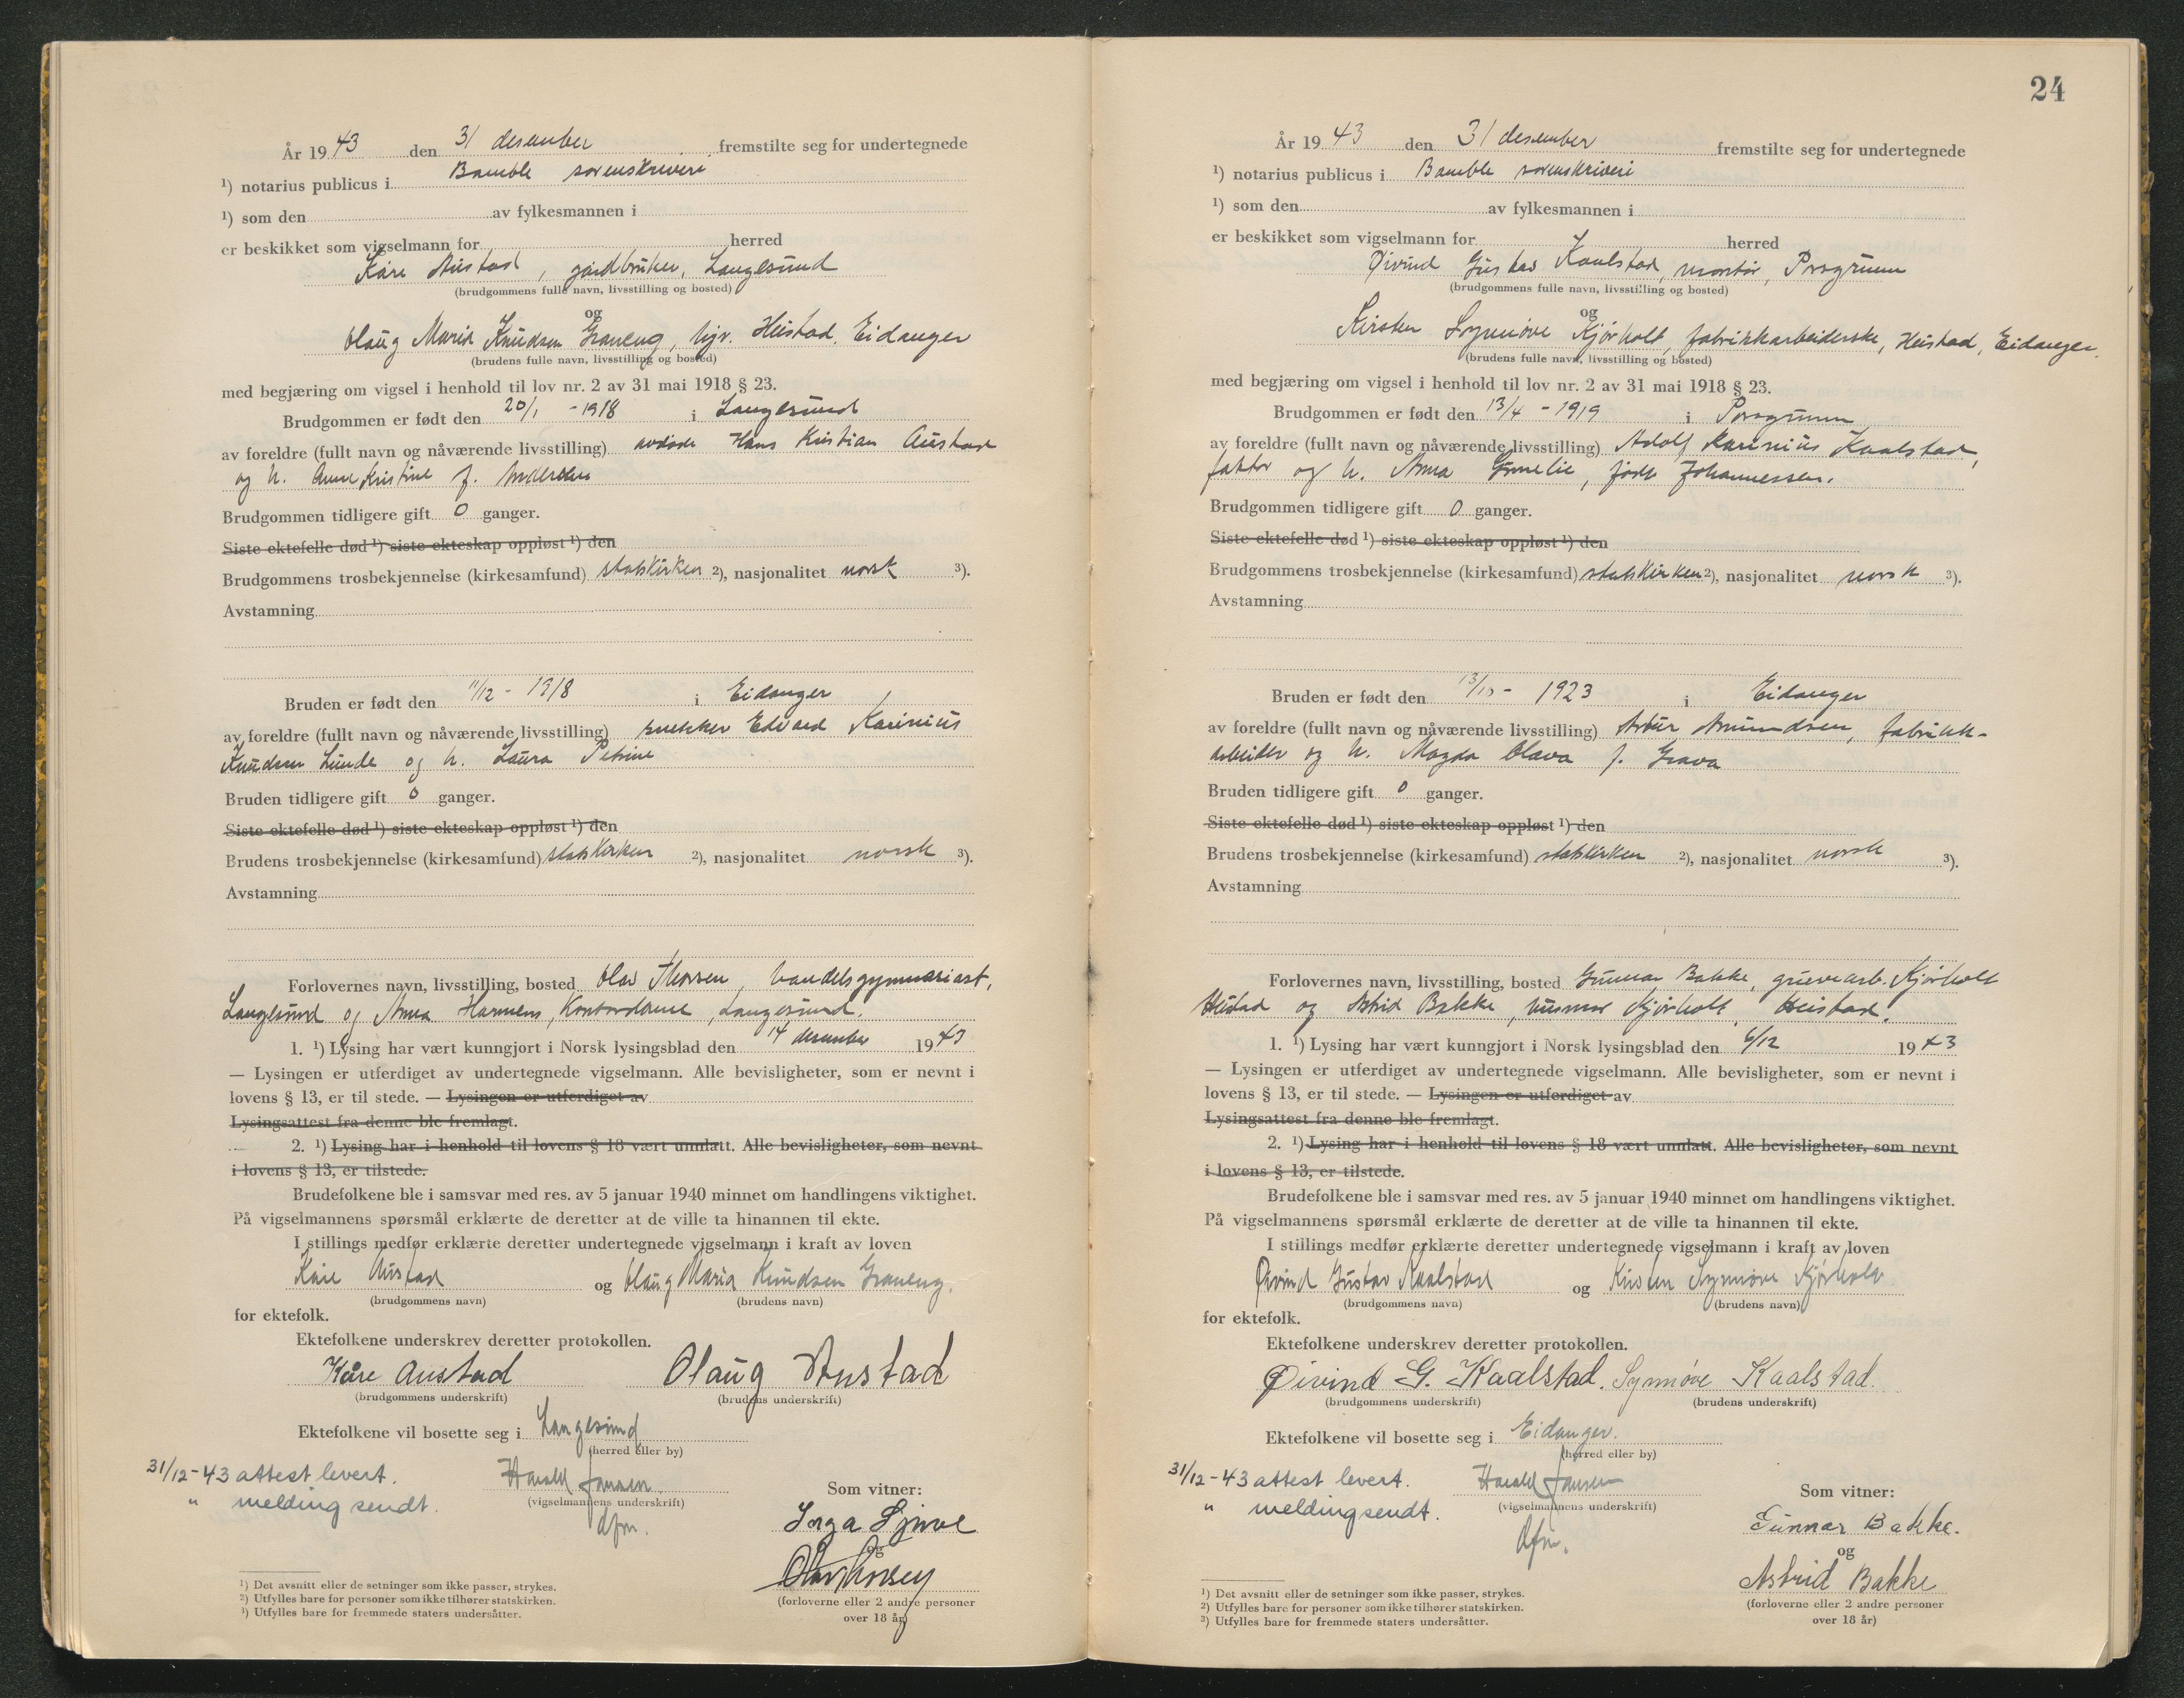 År 19 43 den 31 desember fremstilte seg for undertegnede
¹) notarius publicus i Bamble sorenskriveri
¹) som den av fylkesmannen i
er beskikket som vigselmann for herred
Kåre Austad, gårdbruker, Langesund
(brudgommens fulle navn, livsstilling og bosted)
og
Olaug Maria Knudsen Graneng, hjv. Heistad, Eidanger
(brudens fulle navn, livsstilling og bosted)
med begjæring om vigsel i henhold til lov nr. 2 av 31 mai 1918 § 23.
Brudgommen er født den 20/1 - 1918 i Langesund
av foreldre (fullt navn og nåværende livsstilling) avdøde Hans Kristian Austad
og h. Anne Kristine f. Andersen
Brudgommen tidligere gift 0 ganger.
Siste ektefelle død ¹) siste ekteskap oppløst ¹) den
Brudgommens trosbekjennelse (kirkesamfund) statskirken ²), nasjonalitet norsk ³).
Avstamning
Bruden er født den 11/12 - 1918 i Eidanger
av foreldre (fullt navn og nåværende livsstilling) snekker Edvard Karinius
Knudsen Lunde og h. Laura Petrine
Bruden tidligere gift 0 ganger.
Siste ektefelle død ¹) siste ekteskap oppløst ¹) den
Brudens trosbekjennelse (kirkesamfund) statskirken ²), nasjonalitet norsk ³).
Avstamning
Forlovernes navn, livsstilling, bosted Olav Thorsen, handelsgymnasiast,
Langesund og Anna Harmens, Kontordame, Langesund.
1. ¹) Lysing har vært kunngjort i Norsk lysingsblad den 14 desember 19 43
— Lysingen er utferdiget av undertegnede vigselmann. Alle bevisligheter, som er nevnt i
lovens § 13, er til stede. — Lysingen er utferdiget av
Lysingsattest fra denne ble fremlagt.
2. ¹) Lysing har i henhold til lovens § 18 vært unnlatt. Alle bevisligheter, som nevnt
i lovens § 13, er tilstede.
Brudefolkene ble i samsvar med res. av 5 januar 1940 minnet om handlingens viktighet.
På vigselmannens spørsmål erklærte de deretter at de ville ta hinannen til ekte.
I stillings medfør erklærte deretter undertegnede vigselmann i kraft av loven
Kåre Austad og Olaug Maria Knudsen Graneng.
(brudgommens navn) (brudens navn)
for ektefolk.
Ektefolkene underskrev deretter protokollen.
Kåre Austad Olaug Austad
(brudgommens underskrift) (brudens underskrift)
Ektefolkene vil bosette seg i Langesund
(herred eller by)
31/12-43 attest levert. Harald Jansen
" melding sendt. (vigselmannens underskrift)
dfm.
Som vitner:
Inga
og
Olav Thorsen
(forloverne eller 2 andre personer
over 18 år)
¹) Det avsnitt eller de setninger som ikke passer, strykes.
²) Utfylles bare for personer som ikke tilhører statskirken.
³) Utfylles bare for fremmede staters undersåtter.
24
År 19 43 den 31 desember fremstilte seg for undertegnede
¹) notarius publicus i Bamble sorenskriveri
¹) som den av fylkesmannen i
er beskikket som vigselmann for herred
Øivind Gustav Kaalstad, montør, Porsgrunn
(brudgommens fulle navn, livsstilling og bosted)
og
Kirsten Synnøve Kjørholt, fabrikkarbeiderske, Heistad, Eidanger.
(brudens fulle navn, livsstilling og bosted)
med begjæring om vigsel i henhold til lov nr. 2 av 31 mai 1918 § 23.
Brudgommen er født den 13/4 - 1919 i Porsgrunn
av foreldre (fullt navn og nåværende livsstilling) Adolf Karinius Kaalstad,
faktor og h. Anna Gunelie, født Johannessen.
Brudgommen tidligere gift 0 ganger.
Siste ektefelle død ¹) siste ekteskap oppløst ¹) den
Brudgommens trosbekjennelse (kirkesamfund) statskirken ²), nasjonalitet norsk ³).
Avstamning
Bruden er født den 13/10 - 1923 i Eidanger
av foreldre (fullt navn og nåværende livsstilling) Artur Amundsen, fabrikk-
arbeider og h. Magda Olava f. Grava
Bruden tidligere gift 0 ganger.
Siste ektefelle død ¹) siste ekteskap oppløst ¹) den
Brudens trosbekjennelse (kirkesamfund) statskirken ²), nasjonalitet norsk ³).
Avstamning
Forlovernes navn, livsstilling, bosted Gunnar Bakke, gruvearb. Kjørholt
Heistad og Astrid Bakke, husmor Kjørholt, Heistad.
1. ¹) Lysing har vært kunngjort i Norsk lysingsblad den 6/12 19 43
— Lysingen er utferdiget av undertegnede vigselmann. Alle bevisligheter, som er nevnt i
lovens § 13, er til stede. — Lysingen er utferdiget av
Lysingsattest fra denne ble fremlagt.
2. ¹) Lysing har i henhold til lovens § 18 vært unnlatt. Alle bevisligheter, som nevnt
i lovens § 13, er tilstede.
Brudefolkene ble i samsvar med res. av 5 januar 1940 minnet om handlingens viktighet.
På vigselmannens spørsmål erklærte de deretter at de ville ta hinannen til ekte.
I stillings medfør erklærte deretter undertegnede vigselmann i kraft av loven
Øivind Gustav Kaalstad og Kirsten Synnøve Kjørholt
(brudgommens navn) (brudens navn)
for ektefolk.
Ektefolkene underskrev deretter protokollen.
Øivind G. Kaalstad. Synnøve Kaalstad.
(brudgommens underskrift) (brudens underskrift)
Ektefolkene vil bosette seg i Eidanger.
(herred eller by)
31/12-43 attest levert. Harald Jansen
" melding sendt. (vigselmannens underskrift)
dfm.
Som vitner:
Gunnar Bakke.
og
Astrid Bakke
(forloverne eller 2 andre personer
over 18 år)
¹) Det avsnitt eller de setninger som ikke passer, strykes.
²) Utfylles bare for personer som ikke tilhører statskirken.
³) Utfylles bare for fremmede staters undersåtter.